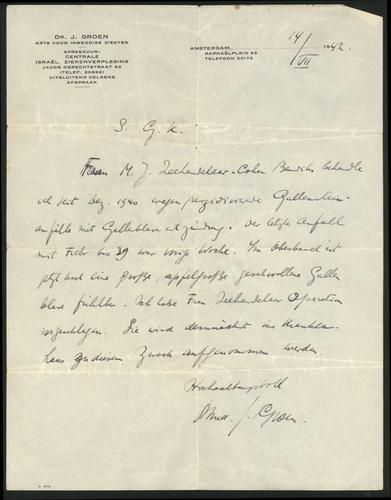 DR. J. GROEN
ARTS VOOR INWENDIGE ZIEKTEN
SPREEKUUR:
CENTRALE
ISRAËL. ZIEKENVERPLEGING
JACOB OBRECHTSTRAAT 92
(TELEF. 20862)
UITSLUITEND VOLGENS
AFSPRAAK
AMSTERDAM, 14/VII 1942.
RAPHAËLPLEIN 35
TELEFOON 20172
S. G. K.
Frau M. J. Zeehandelaar-Cohen Bendiks behandle
ich seit Dez. 1940 wegen rezidivierende Gallenstein-
anfälle mit Gallenblasenentzündung. Der letzte Anfall
mit Fieber bis 39 war vorige Woche. Im Oberbauch ist
jetzt noch eine große, apfelgroße geschwollene Gallen
blase fühlbar. Ich habe Frau Zeehandelaar Operation
vorgeschlagen. Sie wird demnächst ins Kranken-
haus zu diesem Zweck aufgenommen werden.
Hochachtungsvoll
J. Groen.